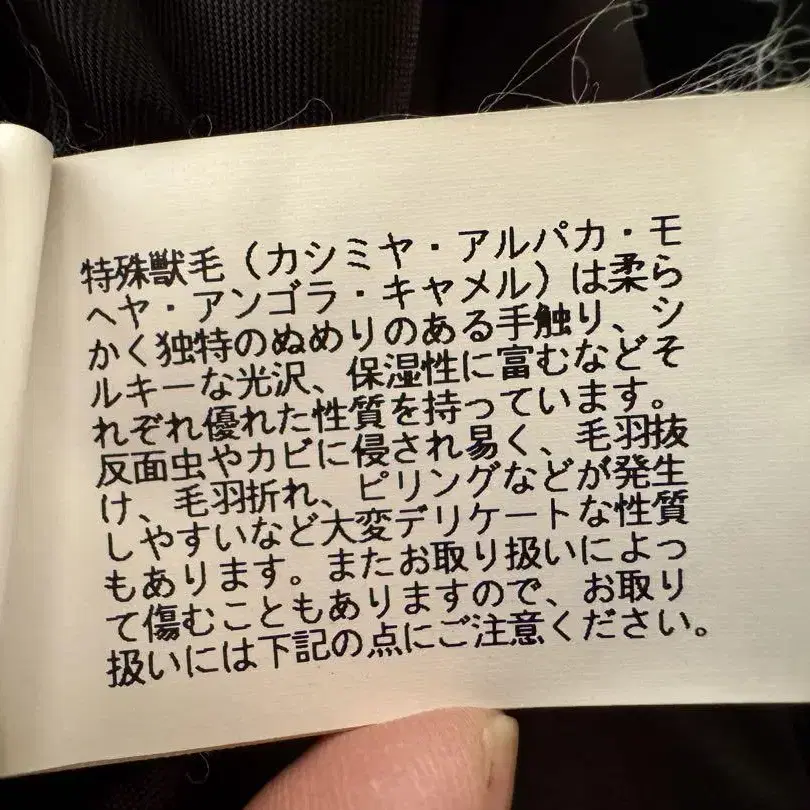 特殊獣毛（カシミヤ・アルパカ・モ
ヘヤ・アンゴラ・キャメル）は柔ら
かく独特のぬめりのある手触り、シ
ルキーな光沢、保湿性に富むなどそ
れぞれ優れた性質を持っています。
反面虫やカビに侵され易く、毛羽抜
け、毛羽折れ、ピリングなどが発生
しやすいなど大変デリケートな性質
もあります。またお取り扱いによっ
て傷むこともありますので、お取り
扱いには下記の点にご注意ください。